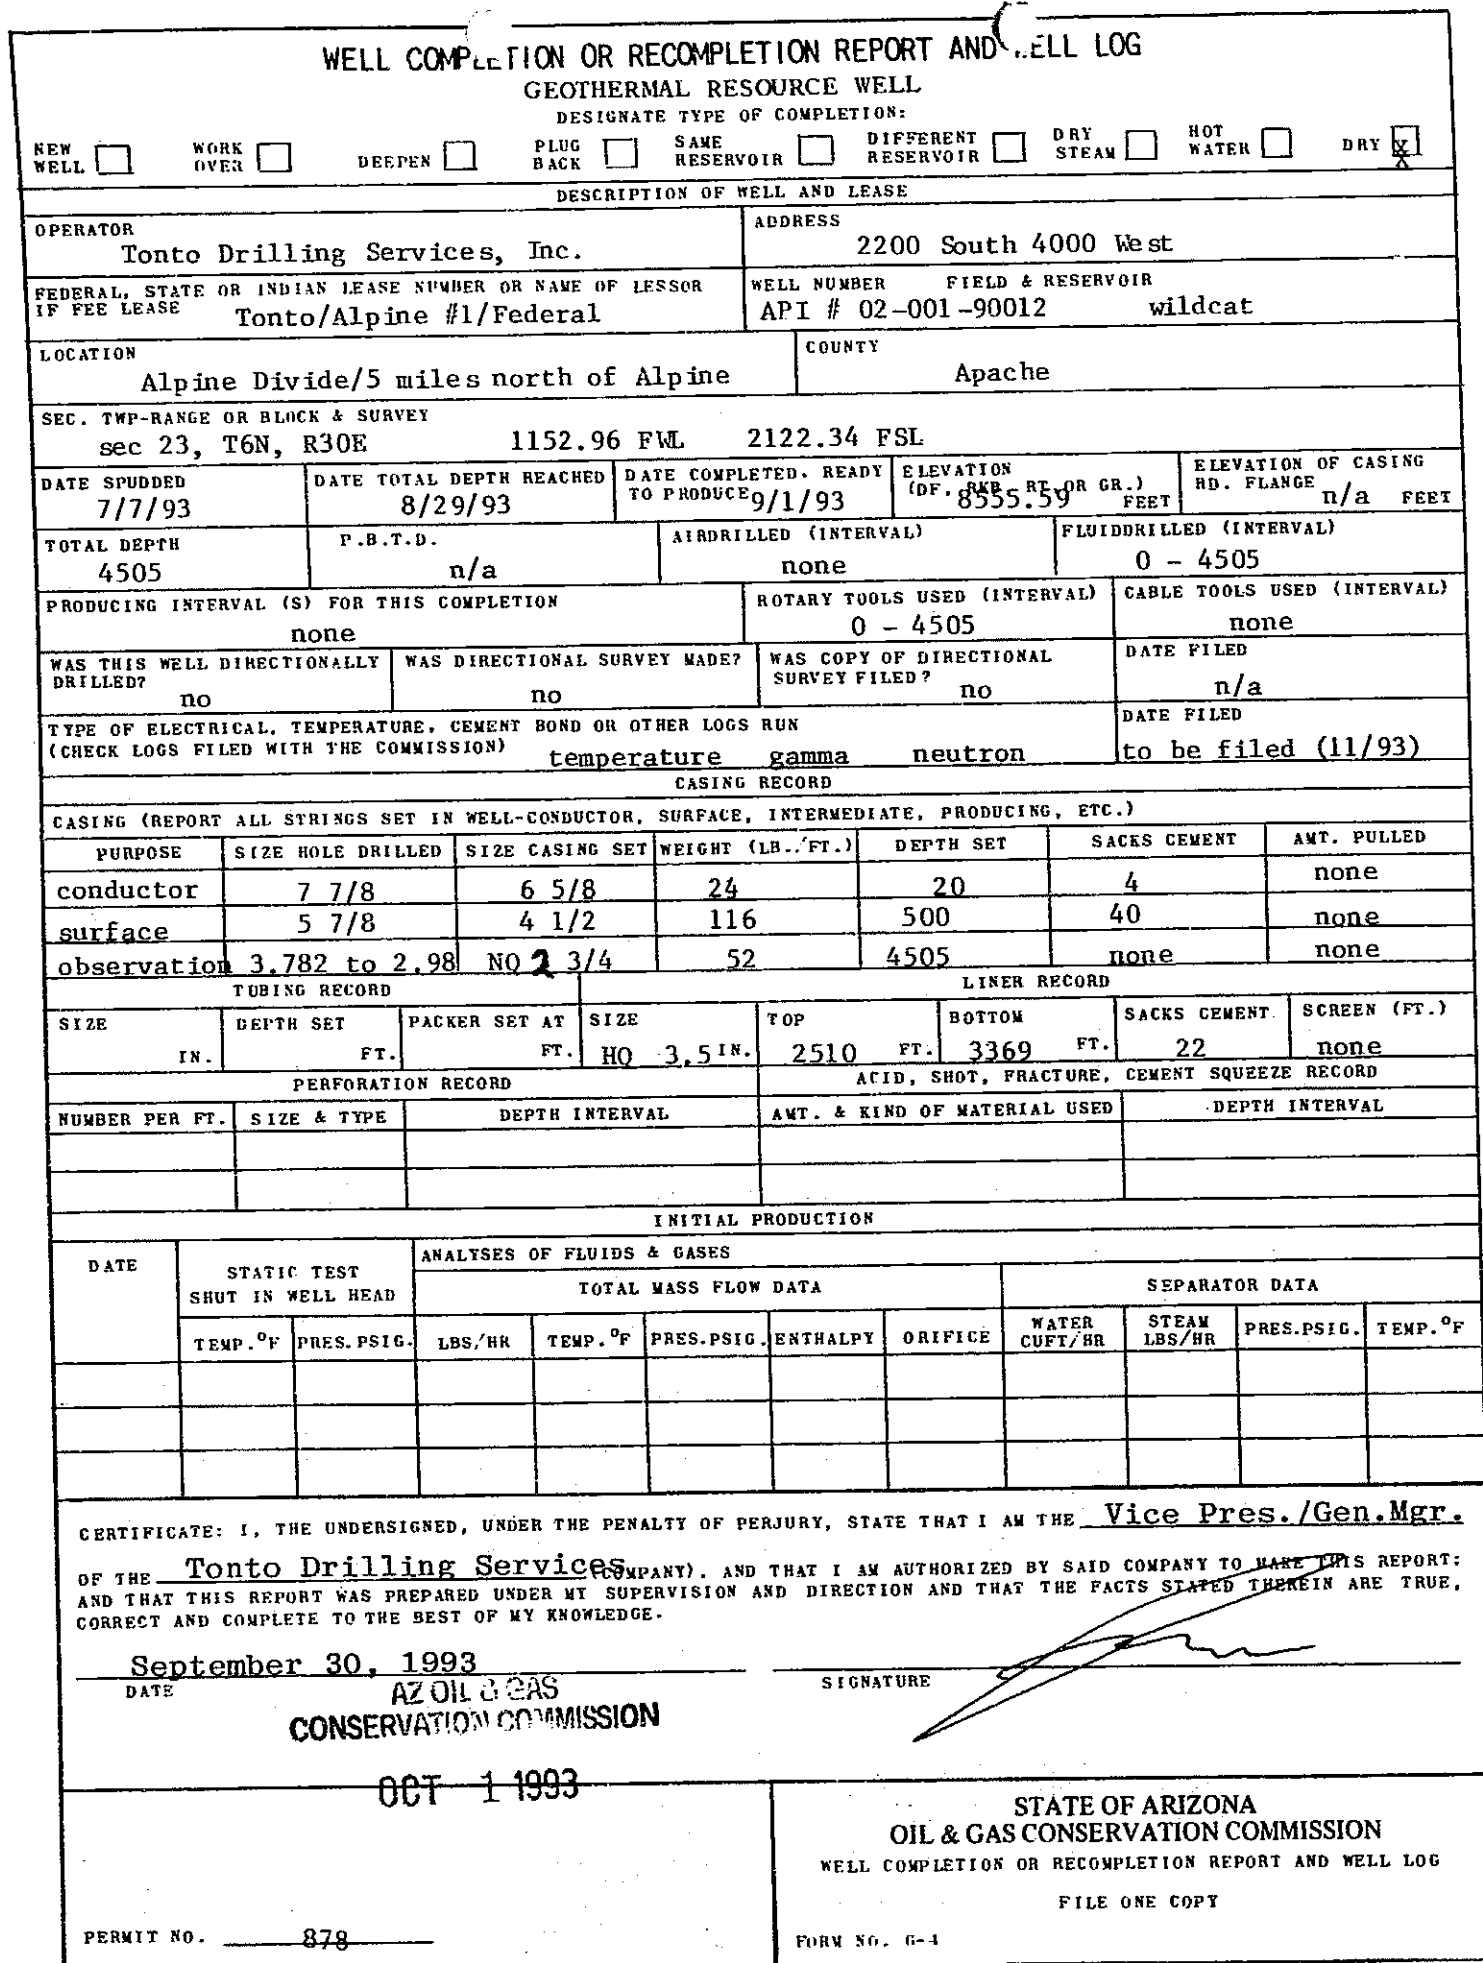 WELL COMPLETION OR RECOMPLETION REPORT AND WELL LOG
GEOTHERMAL RESOURCE WELL
DESIGNATE TYPE OF COMPLETION:
NEW WELL WORK OVER DEEPEN PLUG BACK SAME RESERVOIR DIFFERENT RESERVOIR DRY STEAM HOT WATER DRY X
DESCRIPTION OF WELL AND LEASE
OPERATOR ADDRESS
Tonto Drilling Services, Inc. 2200 South 4000 West
FEDERAL, STATE OR INDIAN LEASE NUMBER OR NAME OF LESSOR WELL NUMBER FIELD & RESERVOIR
IF FEE LEASE Tonto/Alpine #1/Federal API # 02-001-90012 wildcat
LOCATION COUNTY
Alpine Divide/5 miles north of Alpine Apache
SEC. TWP-RANGE OR BLOCK & SURVEY
sec 23, T6N, R30E 1152.96 FWL 2122.34 FSL
DATE SPUDDED DATE TOTAL DEPTH REACHED DATE COMPLETED, READY TO PRODUCE ELEVATION (DF, RKB, RT, OR GR.) ELEVATION OF CASING HD. FLANGE
7/7/93 8/29/93 9/1/93 8555.59 FEET n/a FEET
TOTAL DEPTH P.B.T.D. AIRDRILLED (INTERVAL) FLUIDDRILLED (INTERVAL)
4505 n/a none 0 - 4505
PRODUCING INTERVAL (S) FOR THIS COMPLETION ROTARY TOOLS USED (INTERVAL) CABLE TOOLS USED (INTERVAL)
none 0 - 4505 none
WAS THIS WELL DIRECTIONALLY DRILLED? WAS DIRECTIONAL SURVEY MADE? WAS COPY OF DIRECTIONAL SURVEY FILED? DATE FILED
no no no n/a
TYPE OF ELECTRICAL, TEMPERATURE, CEMENT BOND OR OTHER LOGS RUN DATE FILED
(CHECK LOGS FILED WITH THE COMMISSION) temperature gamma neutron to be filed (11/93)
CASING RECORD
CASING (REPORT ALL STRINGS SET IN WELL-CONDUCTOR, SURFACE, INTERMEDIATE, PRODUCING, ETC.)
PURPOSE SIZE HOLE DRILLED SIZE CASING SET WEIGHT (LB./FT.) DEPTH SET SACKS CEMENT AMT. PULLED
conductor 7 7/8 6 5/8 24 20 4 none
surface 5 7/8 4 1/2 116 500 40 none
observation 3.782 to 2.98 NQ 2 3/4 52 4505 none none
TUBING RECORD LINER RECORD
SIZE DEPTH SET PACKER SET AT SIZE TOP BOTTOM SACKS CEMENT SCREEN (FT.)
IN. FT. FT. HQ 3.5 IN. 2510 FT. 3369 FT. 22 none
PERFORATION RECORD ACID, SHOT, FRACTURE, CEMENT SQUEEZE RECORD
NUMBER PER FT. SIZE & TYPE DEPTH INTERVAL AMT. & KIND OF MATERIAL USED DEPTH INTERVAL
INITIAL PRODUCTION
DATE STATIC TEST SHUT IN WELL HEAD ANALYSES OF FLUIDS & GASES
TOTAL MASS FLOW DATA SEPARATOR DATA
TEMP. °F PRES. PSIG. LBS/HR TEMP. °F PRES.PSIG. ENTHALPY ORIFICE WATER CUFT/HR STEAM LBS/HR PRES.PSIG. TEMP. °F
CERTIFICATE: I, THE UNDERSIGNED, UNDER THE PENALTY OF PERJURY, STATE THAT I AM THE Vice Pres./Gen.Mgr.
OF THE Tonto Drilling Services (COMPANY), AND THAT I AM AUTHORIZED BY SAID COMPANY TO MAKE THIS REPORT;
AND THAT THIS REPORT WAS PREPARED UNDER MY SUPERVISION AND DIRECTION AND THAT THE FACTS STATED THEREIN ARE TRUE,
CORRECT AND COMPLETE TO THE BEST OF MY KNOWLEDGE.
September 30, 1993
DATE SIGNATURE
AZ OIL & GAS
CONSERVATION COMMISSION
OCT 1 1993
STATE OF ARIZONA
OIL & GAS CONSERVATION COMMISSION
WELL COMPLETION OR RECOMPLETION REPORT AND WELL LOG
FILE ONE COPY
PERMIT NO. 878 FORM NO. G-4